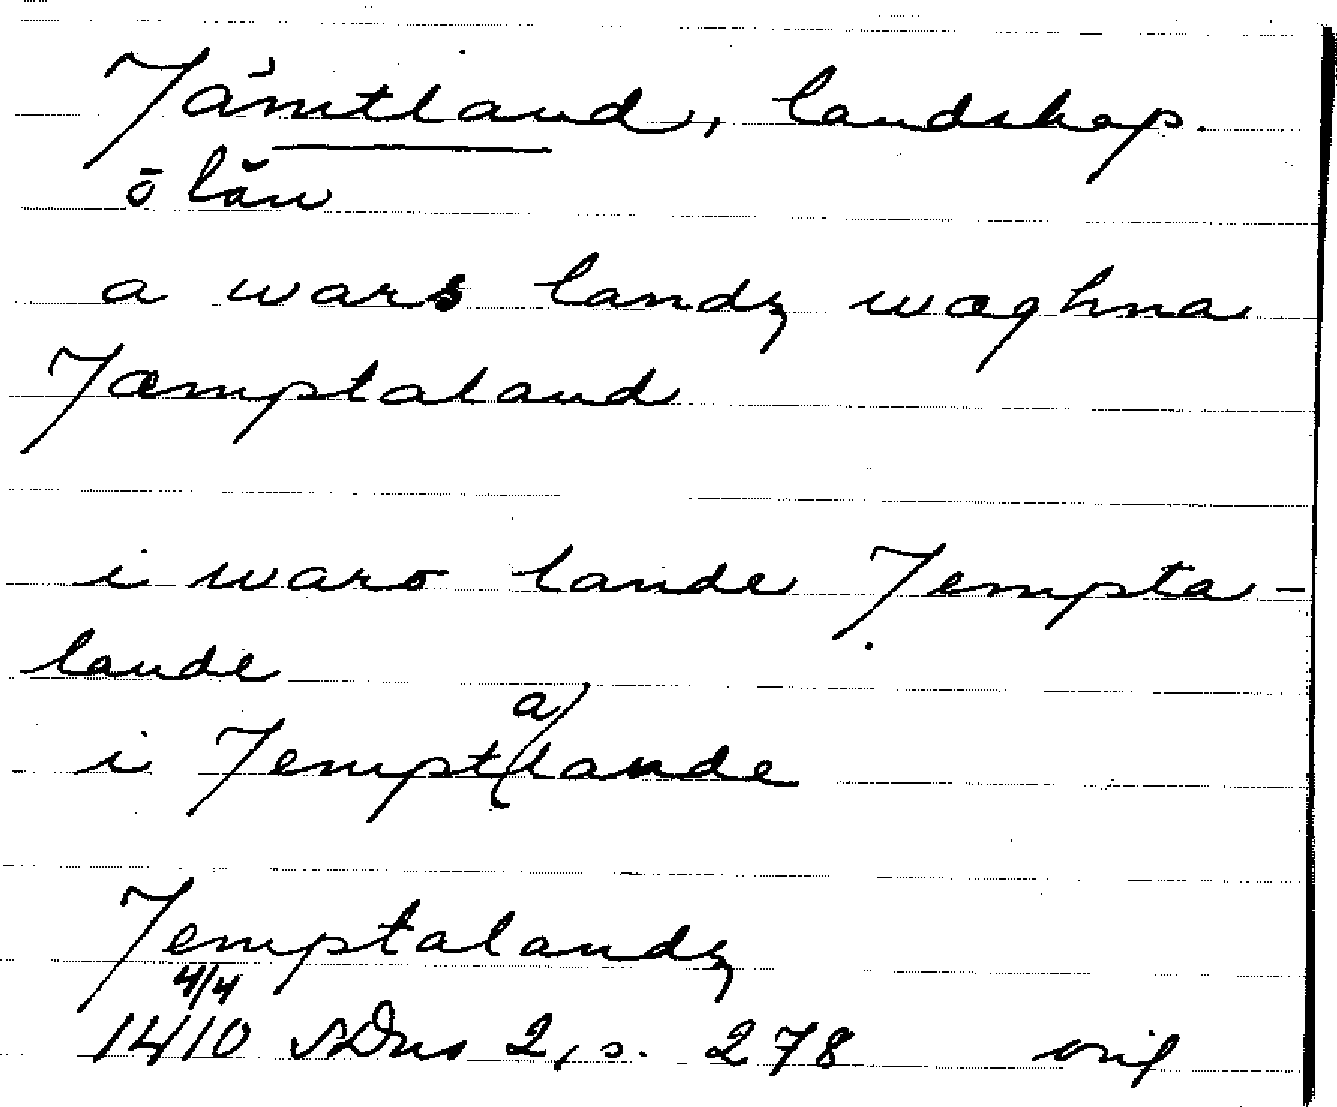 Jämtland, landskap.
ö län
a wars landz wæghna
Jæmptaland
i waro lande Jempta-
lande
i Jempt(a)lande
Jemptalandz
4/4
1410 SDns 2, s. 278 orig